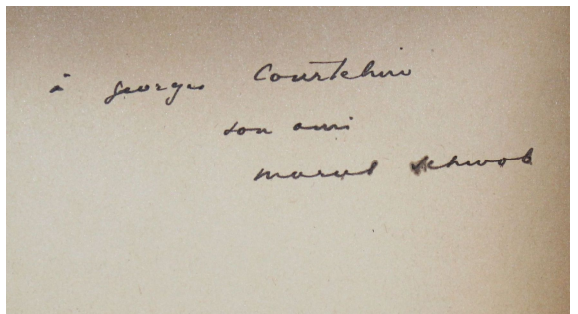 à georges Courteline
son ami
marcel schwob